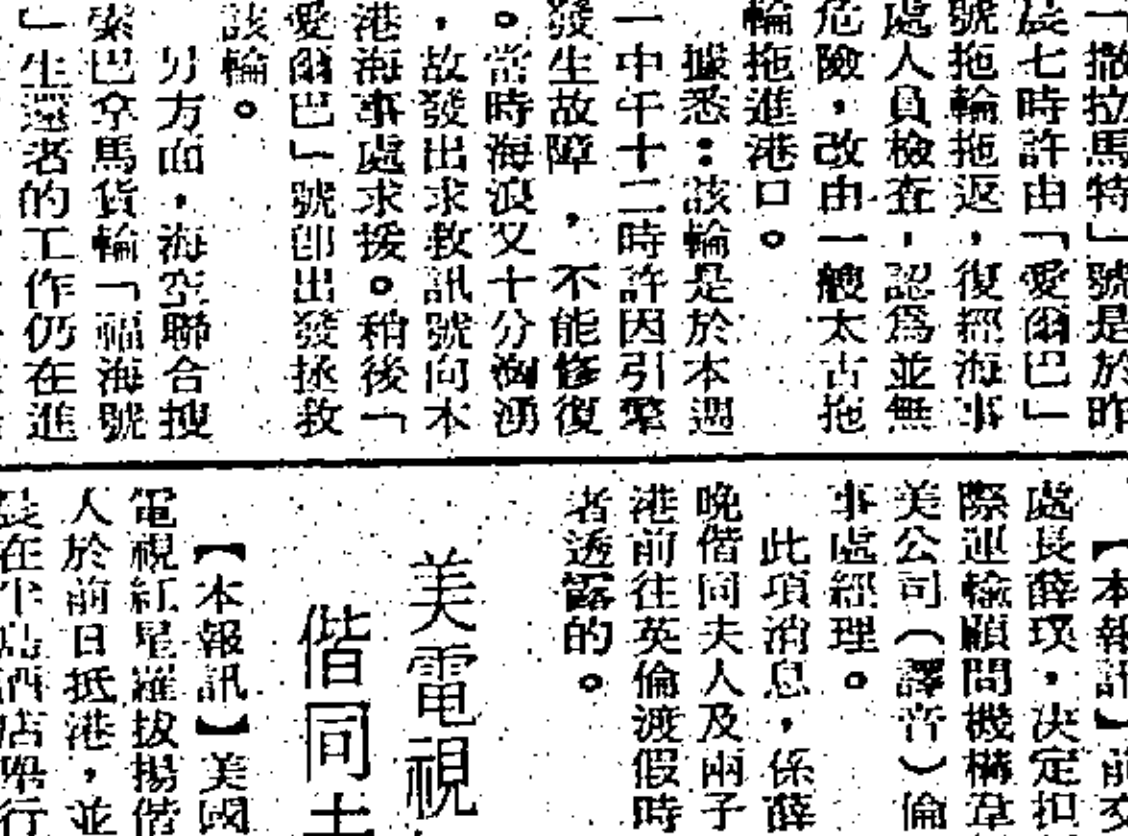 「撒拉馬特」號是於昨
晨七時許由「愛爾巴」
號拖輪拖返，復經海事
處人員檢查，認爲並無
危險，改由一艘太古拖
輪拖進港口。
據悉：該輪是於本週
一中午十二時許因引擎
發生故障，不能修復
。當時海浪又十分洶湧
，故發出求救訊號向本
港海事處求援。稍後「
愛爾巴」號卽出發拯救
該輪。
另方面，海空聯合搜
索巴拿馬貨輪「福海號
」生還者的工作仍在進
【本報訊】前交
處長薛璞，決定担
際運輸顧問機構韋
美公司（譯音）倫
事處經理。
此項消息，係薛
晚偕同夫人及兩子
港前往英倫渡假時
者透露的。
美電視
偕同夫
【本報訊】美國
電視紅星羅拔揚偕
人於前日抵港，並
長在半島酒店舉行